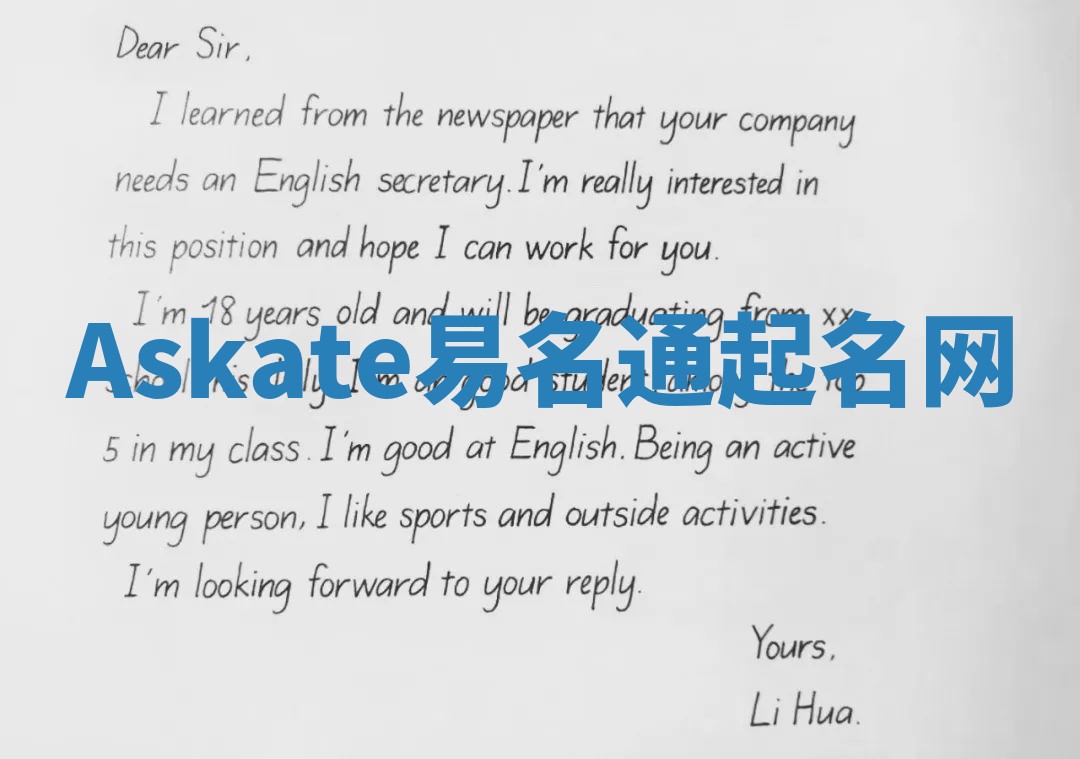 Dear Sir,
I learned from the newspaper that your company
needs an English secretary. I'm really interested in
this position and hope I can work for you.
I'm 18 years old and will be graduating from xx
Askate易名通起名网
school this July. I'm a good student among the top
5 in my class. I'm good at English. Being an active
young person, I like sports and outside activities.
I'm looking forward to your reply.
Yours,
Li Hua.